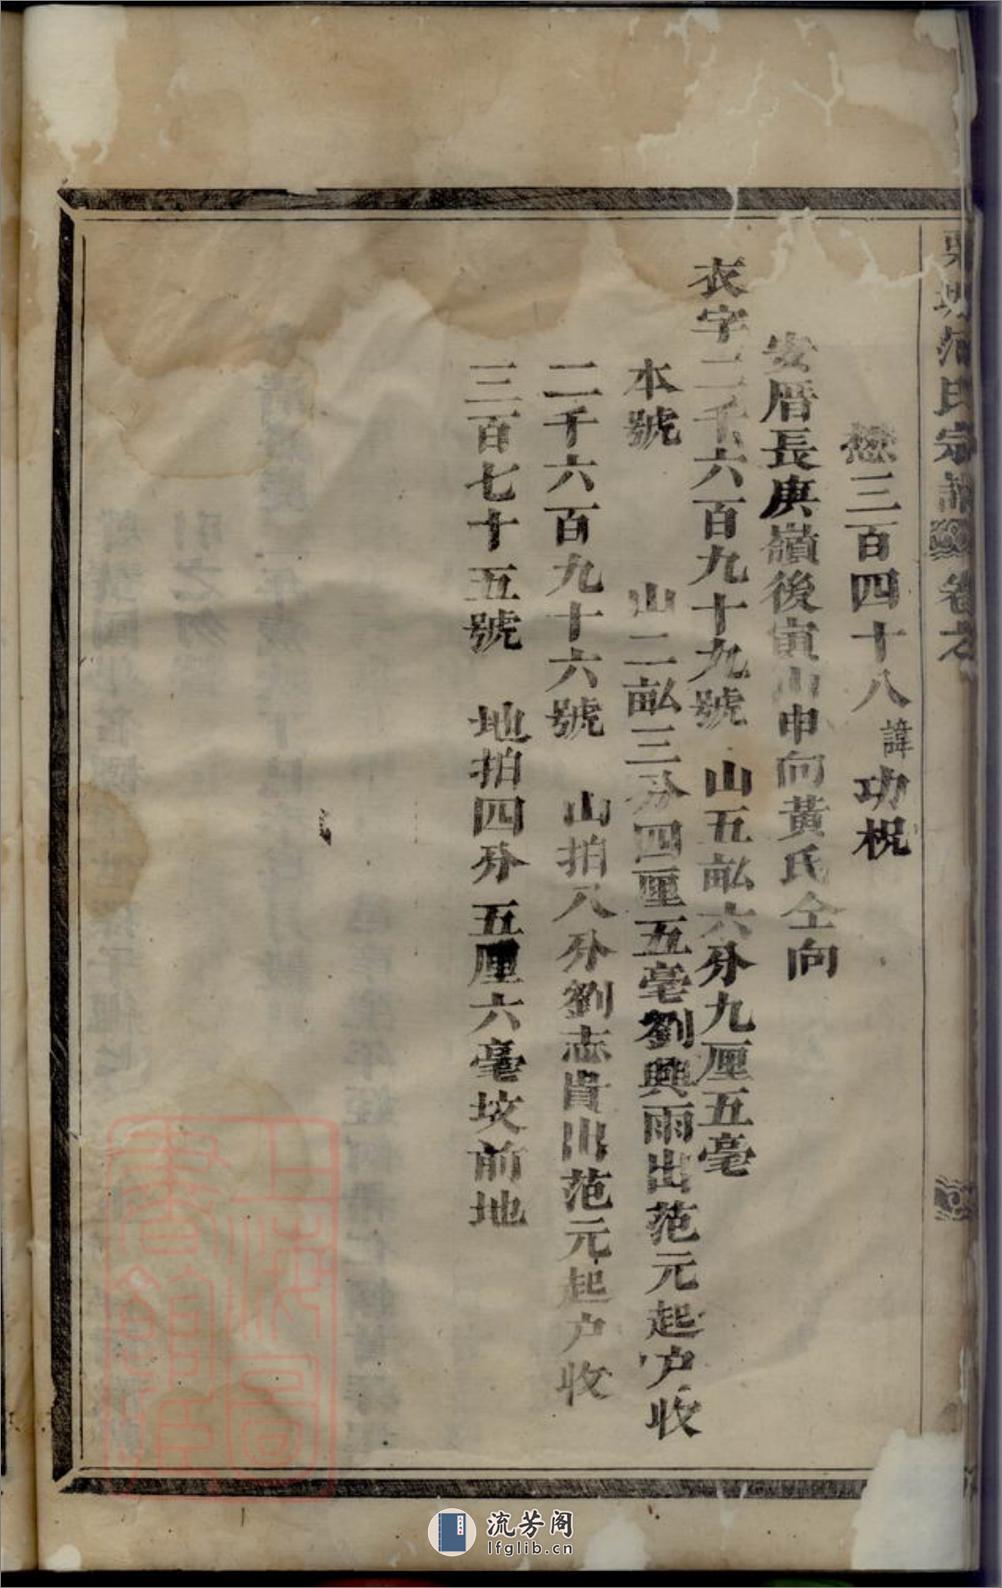 氏宗譜 卷之
懋三百四十八諱功柷
安厝長庚嶺後寅山申向黃氏仝向
衣字二千六百九十九號 山五畝六分九厘五毫
本號 山二畝三分四厘五毫劉興雨出范元起户收
二千六百九十六號 山拍八分劉志貴出范元起户收
三百七十五號 地拍四分五厘六毫坟前地
上海圖書館藏
流芳阁
lfglib.cn